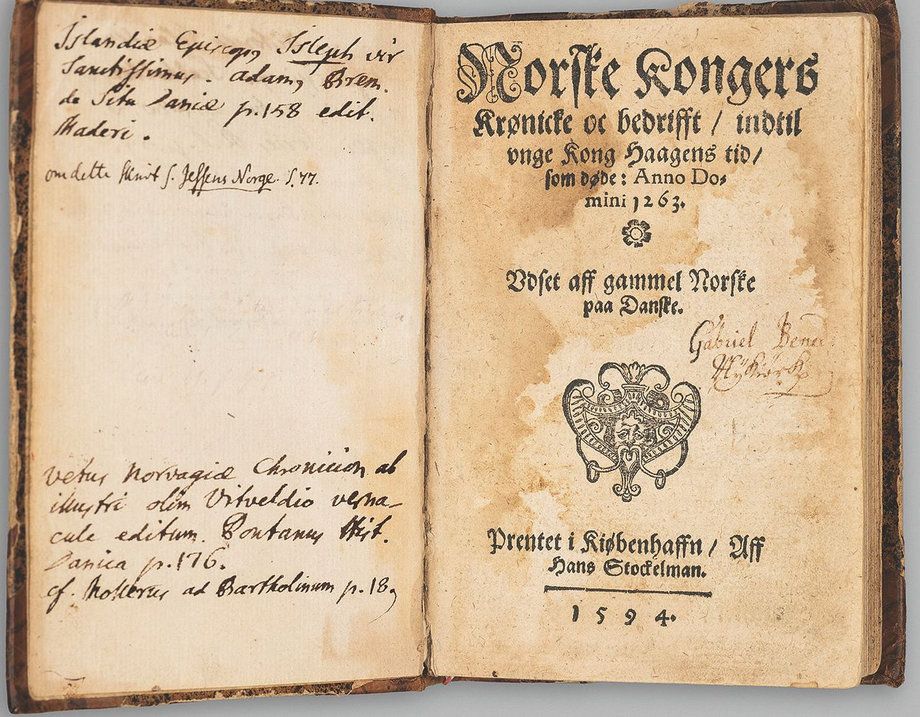 Islandiæ Episcopq Isleph vir
Sanctissimus. adamq Brem.
de Situ Daniæ p.158 edit.
Maderi.
om dette skrivt s. Jessens Norge S. 77.
vetus Norvagiæ Chronicion ab
illustri olim Vitveldio verna-
cule editum. Pontanus Hist.
Danica p.176.
cf. Mollerus ad Bartholinum p.18,
Norske Kongers
Krønicke oc bedrifft / indtil
vnge Kong Haagens tid/
som døde: Anno Do-
mini 1263.
Vdset aff gammel Norske
paa Danske.
Gabriel
Prentet i Kiøbenhaffn / Aff
Hans Stockelman.
1594.